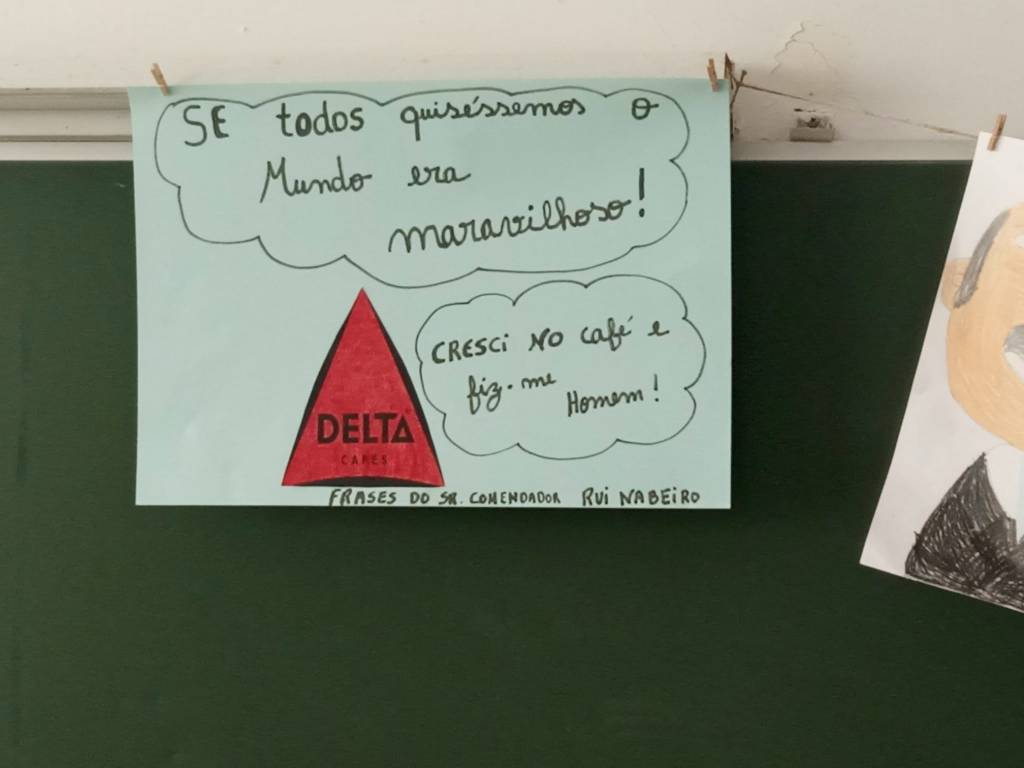 SE todos quiséssemos o
Mundo era
maravilhoso!
CRESCi NO café e
fiz-me
Homem!
DELTA
CAFÉS
FRASES DO SR. COMENDADOR RUI NABEIRO